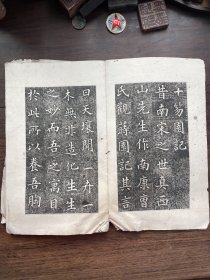 十笏園記
昔南宋之世真西
山先生作南康曾
氏觀蒔園記其言
曰天壤間一卉一
木無非造化生生
之妙而吾之寓目
於此所以養吾胸